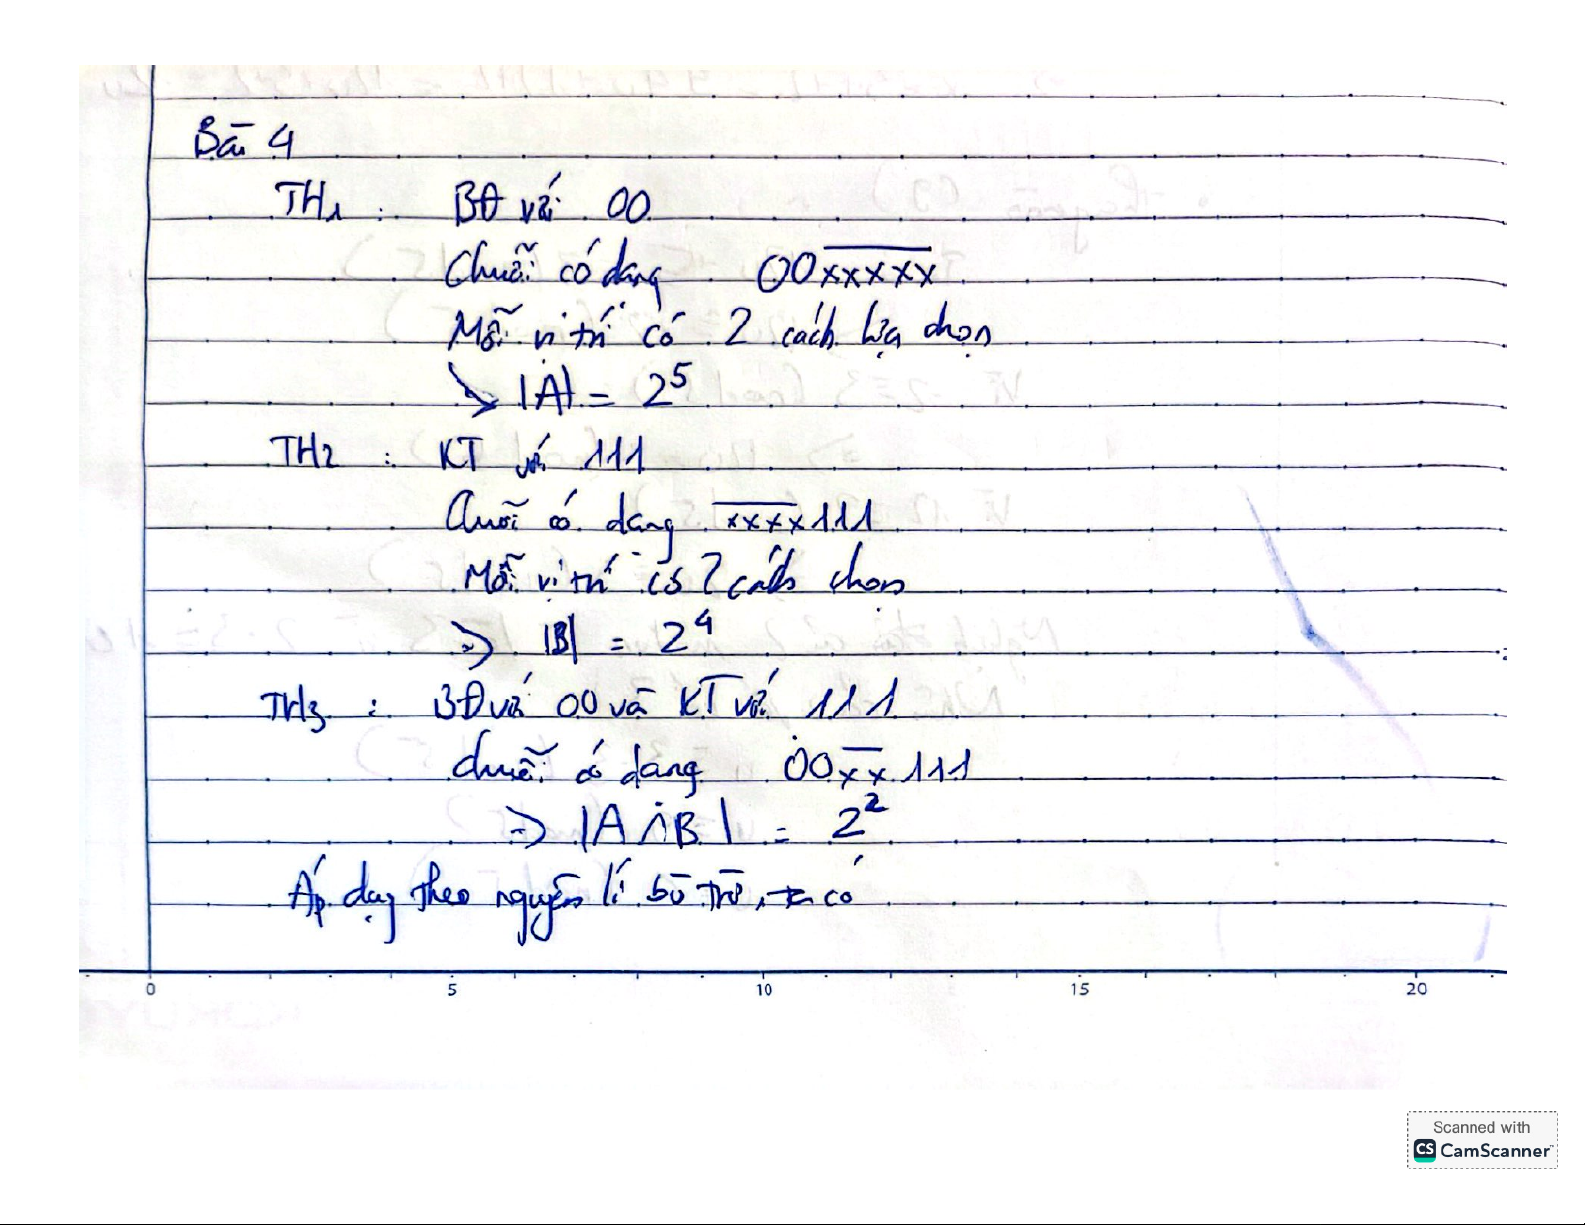 Bài 4
TH1 : BĐ với 00
Chuỗi có dạng 00xxxxx
Mỗi vị trí có 2 cách lựa chọn
→ |A| = 2^5
TH2 : KT với 111
Chuỗi có dạng xxxx111
Mỗi vị trí có 2 cách chọn
=> |B| = 2^4
TH3 : BĐ với 00 và KT với 111
chuỗi có dạng 00xx111
=> |A ∩ B| = 2^2
Áp dụng theo nguyên lí bù trừ, ta có
0 5 10 15 20
Scanned with
CS CamScanner